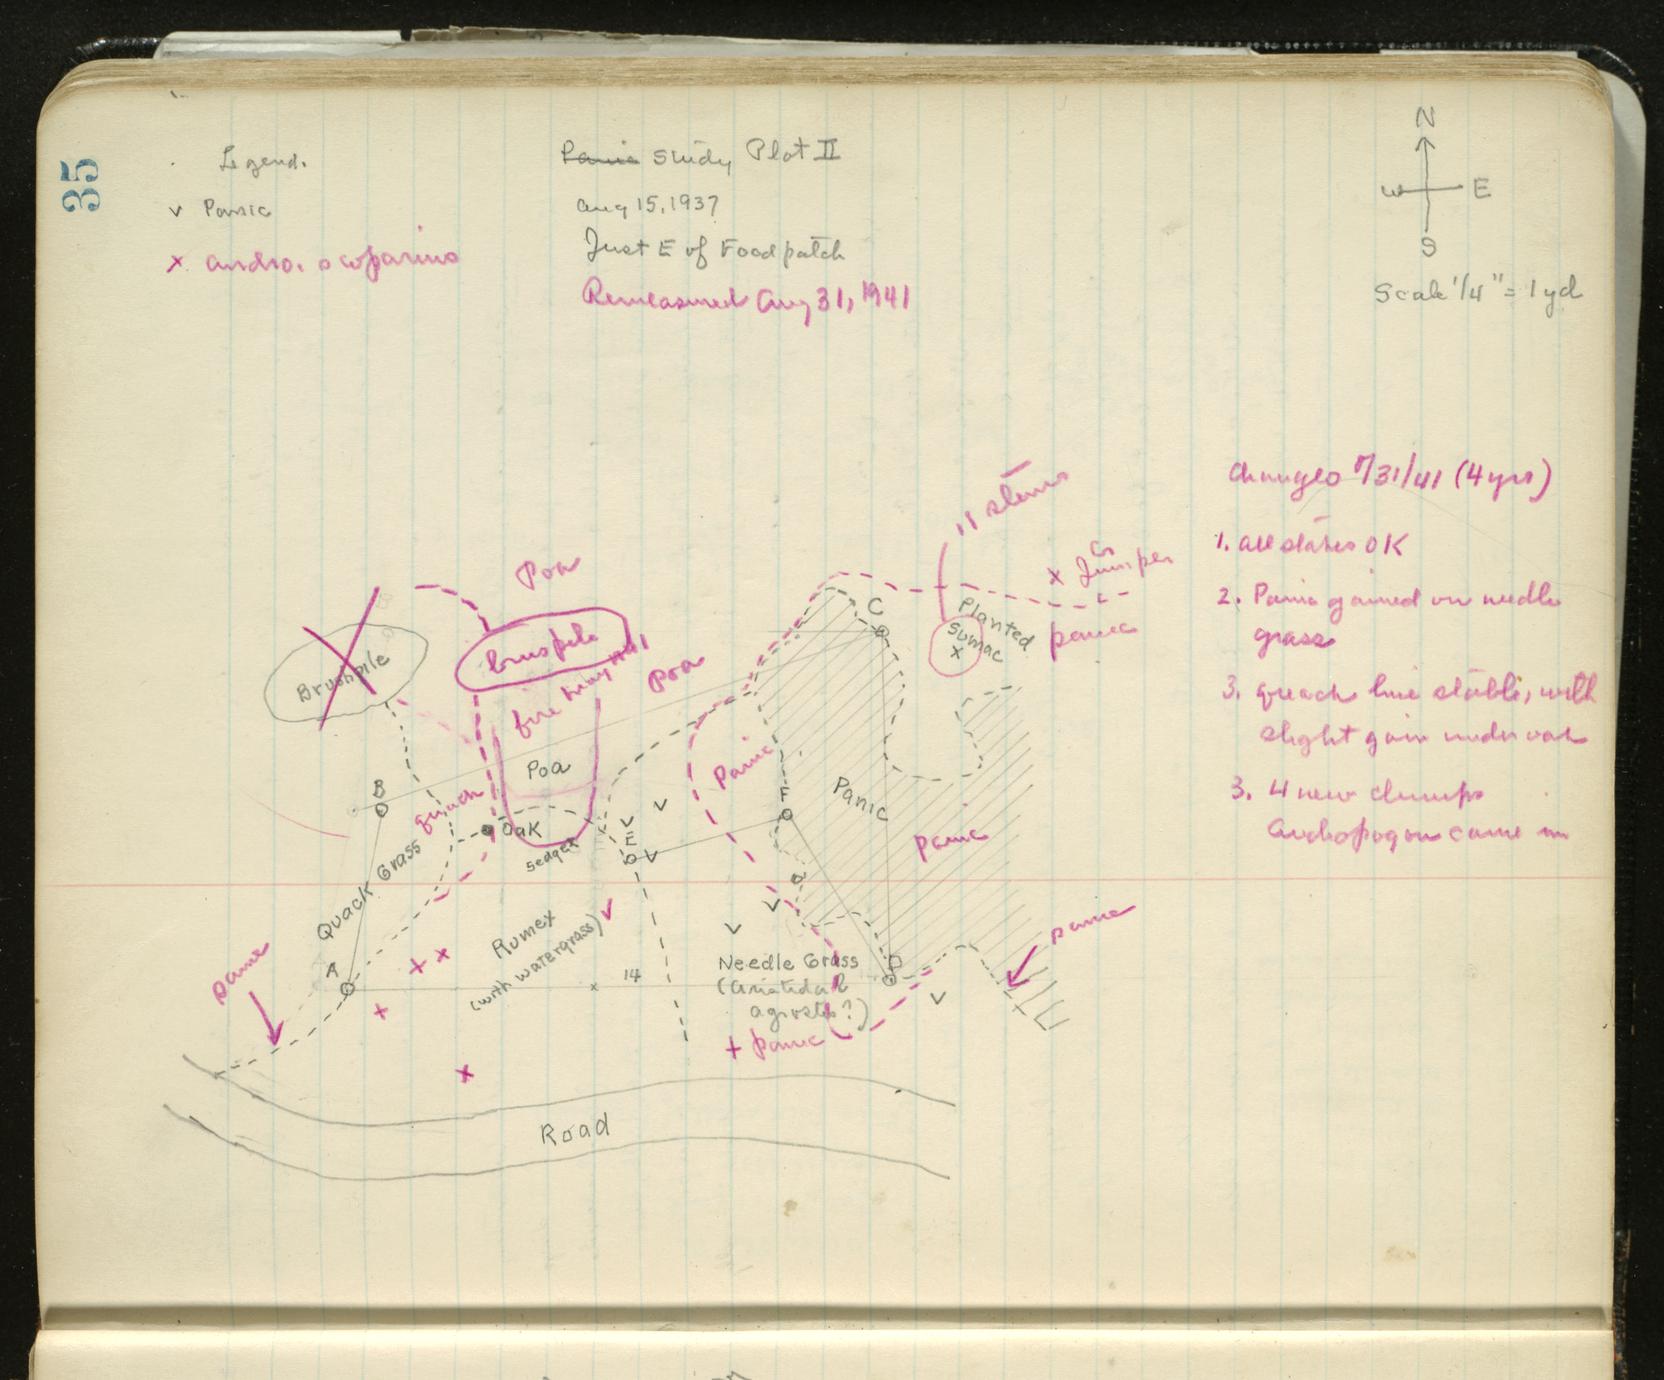 35
Legend.
v Panic
x andro. scoparius
Panic Study Plot II
Aug 15, 1937
Just E of Foodpatch
Remeasured Aug 31, 1941
N
W E
S
Scale 1/4" = 1 yd
Changes 7/31/41 (4 yrs)
1. all stakes OK
2. Panic gained on needle
grass
3. quack line stable, with
slight gain under oak
3. 4 new clumps
Andropogon came in
11 stems
x Juniper
panic
Planted
Sumac
x
C
Poa
Brushpile
brushpile
fire May 1941
Poa
Poa
B
quack
Oak
Sedges
E
F
Panic
Panic
panic
Quack Grass
A
same
Rumex
(with watergrass)
14
Needle Grass
(Aristida &
agrostis?)
+ panic
D
same
Road